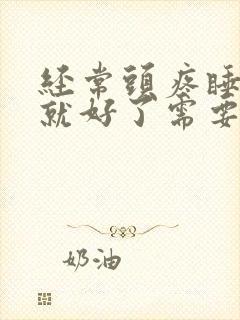 经常頭疼睡
就好了需要
奶油